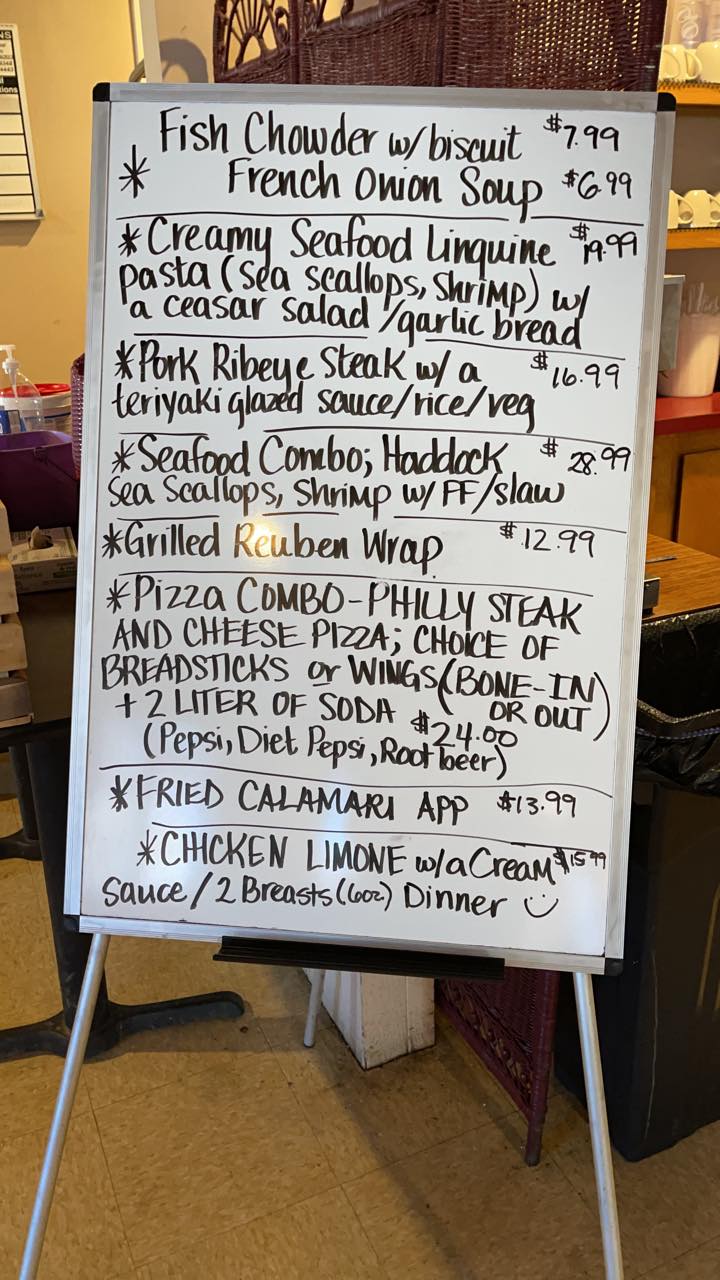 Fish Chowder w/biscuit $7.99
* French Onion Soup $6.99
*Creamy Seafood Linquine $19.99
pasta (sea scallops, shrimp) w/
a ceasar salad /garlic bread
*Pork Ribeye Steak w/ a $16.99
teriyaki glazed sauce/rice/veg
*Seafood Combo; Haddock $28.99
Sea Scallops, Shrimp w/ FF/slaw
*Grilled Reuben Wrap $12.99
*Pizza COMBO-PHILLY STEAK
AND CHEESE PIZZA; CHOICE OF
BREADSTICKS or WINGS (BONE-IN
OR OUT)
+ 2 LITER OF SODA $24.00
(Pepsi, Diet Pepsi, Root beer)
*FRIED CALAMARI APP $13.99
*CHICKEN LIMONE w/a Cream $15.99
Sauce/2 Breasts (6oz) Dinner